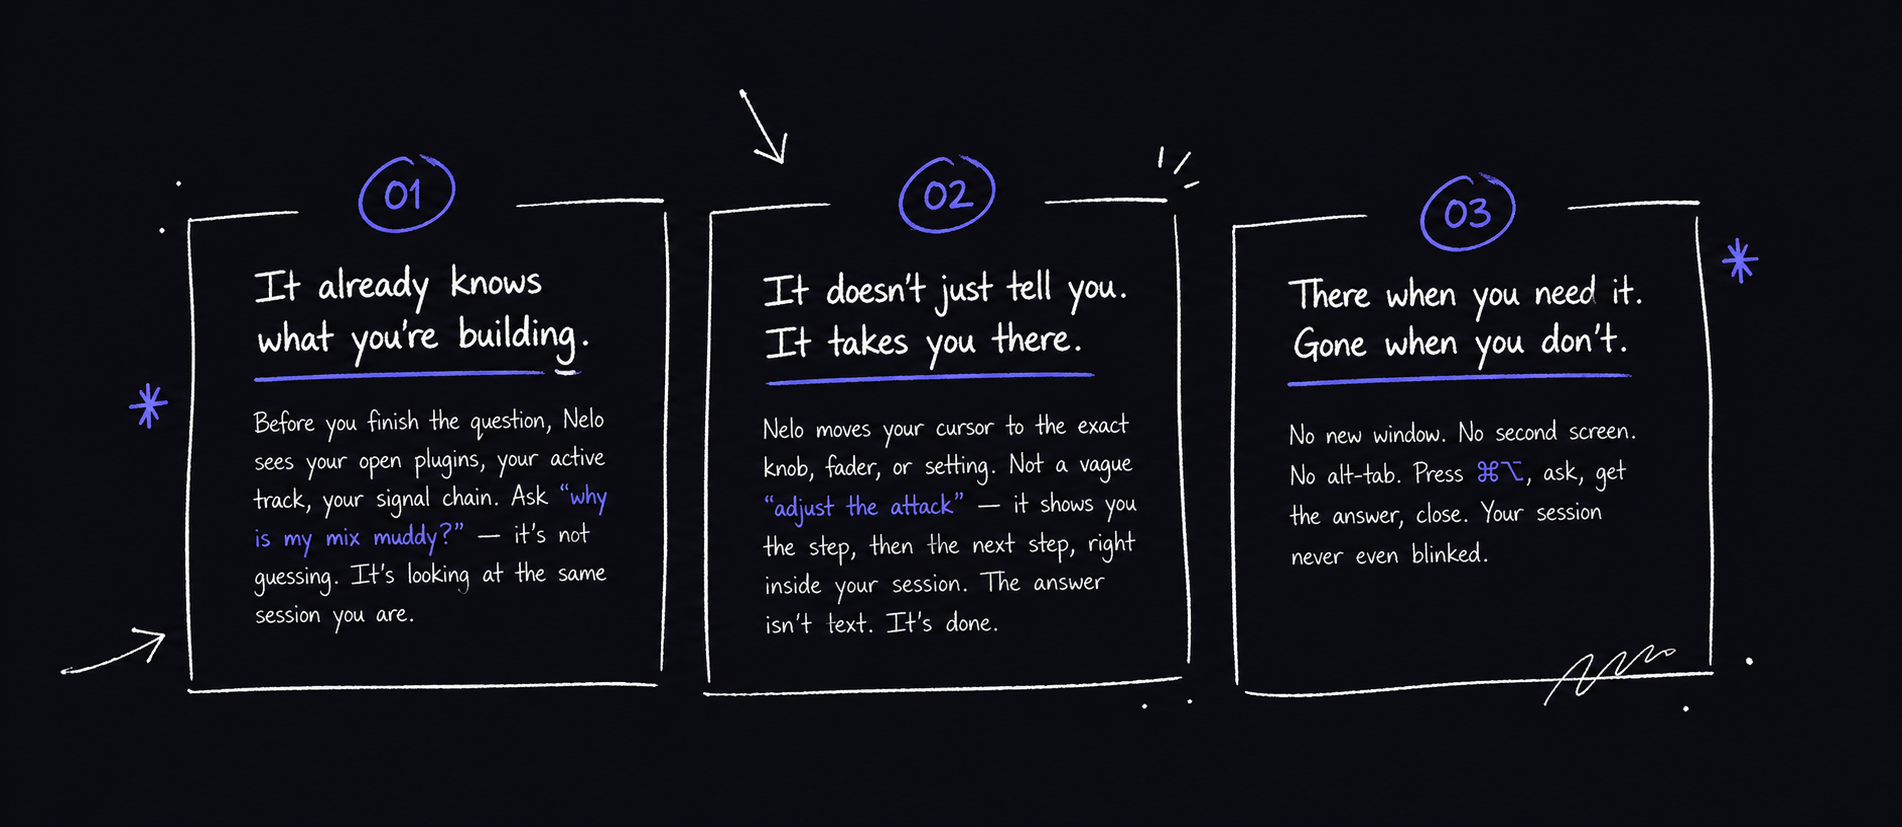 01
It already knows
what you're building.
Before you finish the question, Nelo
sees your open plugins, your active
track, your signal chain. Ask “why
is my mix muddy?” — it's not
guessing. It's looking at the same
session you are.
02
It doesn't just tell you.
It takes you there.
Nelo moves your cursor to the exact
knob, fader, or setting. Not a vague
“adjust the attack” — it shows you
the step, then the next step, right
inside your session. The answer
isn't text. It's done.
03
There when you need it.
Gone when you don't.
No new window. No second screen.
No alt-tab. Press ⌘⌥, ask, get
the answer, close. Your session
never even blinked.